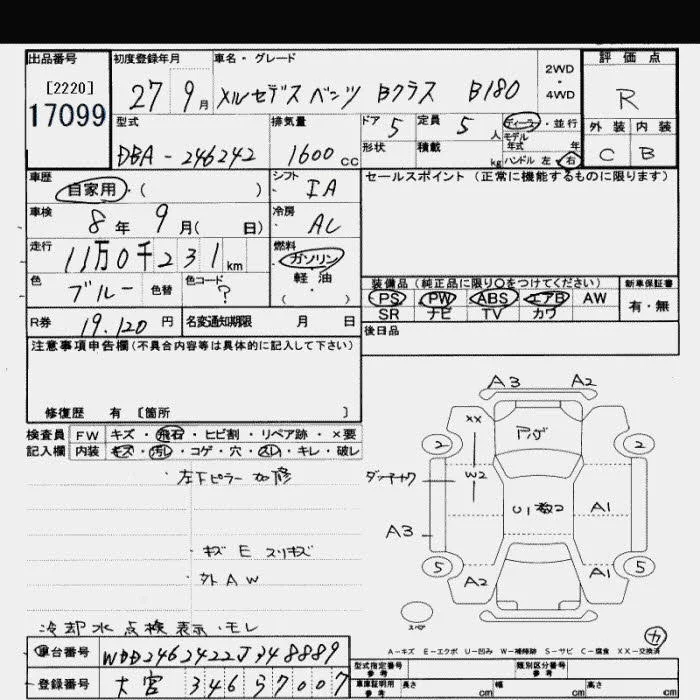 出品番号 初度登録年月 車名・グレード 2WD・4WD 評価点
[2220]
17099
27 9月 メルセデスベンツ Bクラス B180 R
型式 排気量 ドア 5 定員 5人 ディーラー・並行
モデル年式 年
外装 内装
DBA-246242 1600cc 形状 積載 kg ハンドル 左・右 C B
車歴 シフト セールスポイント (正常に機能するものに限ります)
自家用・( ) IA
車検 冷房
8年 9月( 日) AC
走行 燃料
11万0千231km ガソリン
軽油
( ・ )
色 色替 色コード
ブルー ?
装備品 (純正品に限り○をつけてください) 新車保証書
PS PW ABS エアB AW 有・無
SR ナビ TV カワ
R券 19,120円 名変通知期限 月 日
後日品
注意事項申告欄(不具合内容等は具体的に記入して下さい)
修復歴 有 [箇所 ]
検査員 FW キズ・飛石・ヒビ割・リペア跡・×要
記入欄 内装 キズ・汚レ・コゲ・穴・スレ・キレ・破レ
左下ピラー加修
キズ E スリキズ
外AW
冷却水点検表示・モレ
A3 A2
XX
アバタ
2 2
W2
U1数コ
A1
A3
5 5
A2 A1
スペア
カ
A-キズ E-エクボ U-凹み W-補修跡 S-サビ C-腐食 XX-交換済
車台番号 WDD2462422J348889
登録番号 大宮 346 ち 7007
型式指定番号 参考 類別区分番号 参考
車庫証明用 参考 長さ cm 幅 cm 高さ cm